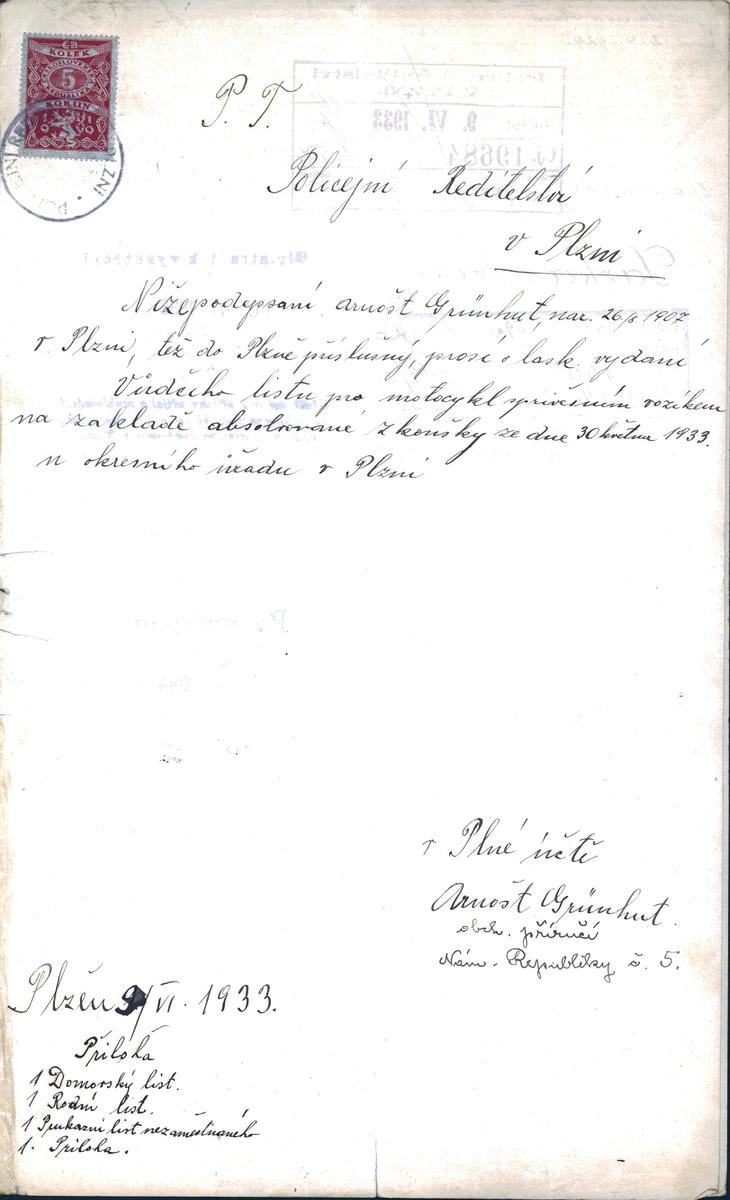 KOLEK
5
KORUN
P. T.
Policejní Reditelství
v Plzni
Nížepodepsaní Arnošt Grünhut, nar. 26/8 1907
v Plzni, též do Plzně příslušný, prosí o lask. vydaní
Vůdčího listu pro motocykl s přivěsním vozíkem
na zakladě absolvované zkoušky ze dne 30 května 1933.
u okresního úřadu v Plzni
v Plné úctě
Arnošt Grünhut.
obch. příručí
Nám. Republiky č. 5.
Plzeň 9/VI. 1933.
Přiloha
1 Domovský list.
1 Rodní list.
1 Prukazní list nezaměstnaného
1. Přiloha.